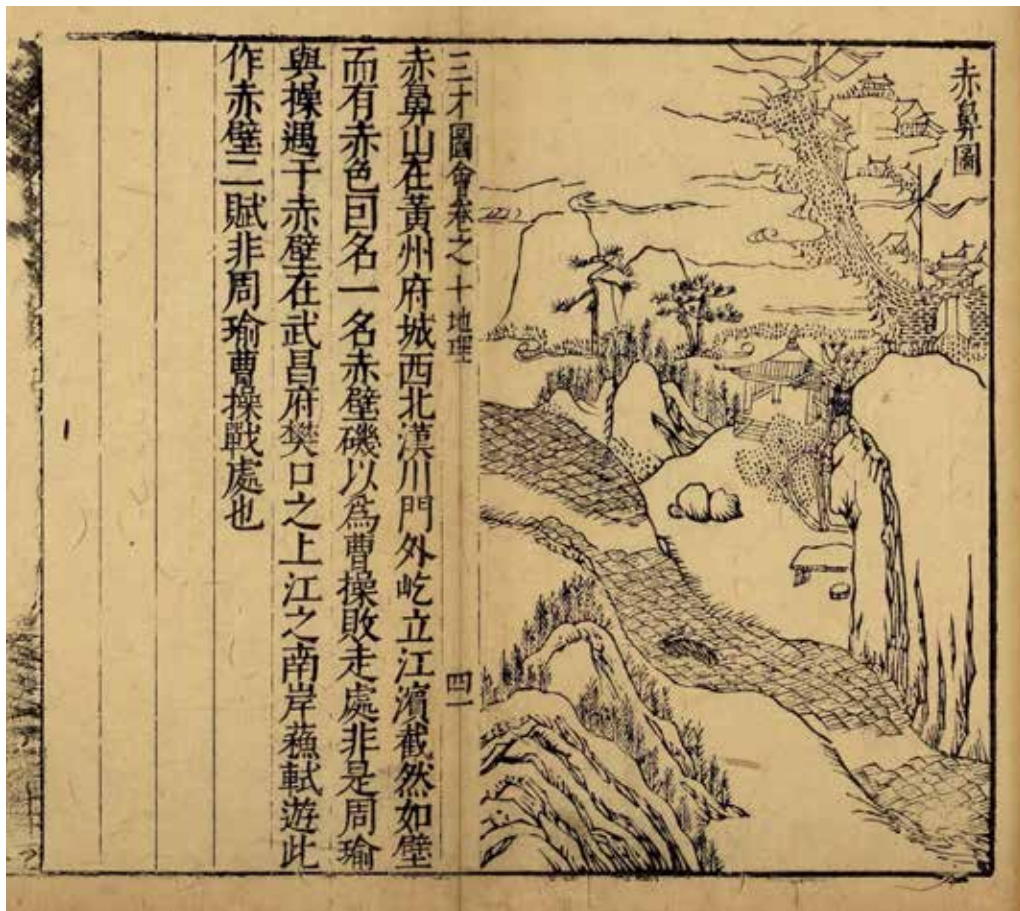 赤鼻圖
三才圖會卷之十地理 四一
赤鼻山在黃州府城西北漢川門外屹立江濱截然如壁
而有赤色囙名一名赤壁磯以爲曹操敗走處非是周瑜
與操遇于赤壁在武昌府樊口之上江之南岸蘓軾遊此
作赤壁二賦非周瑜曹操戰處也